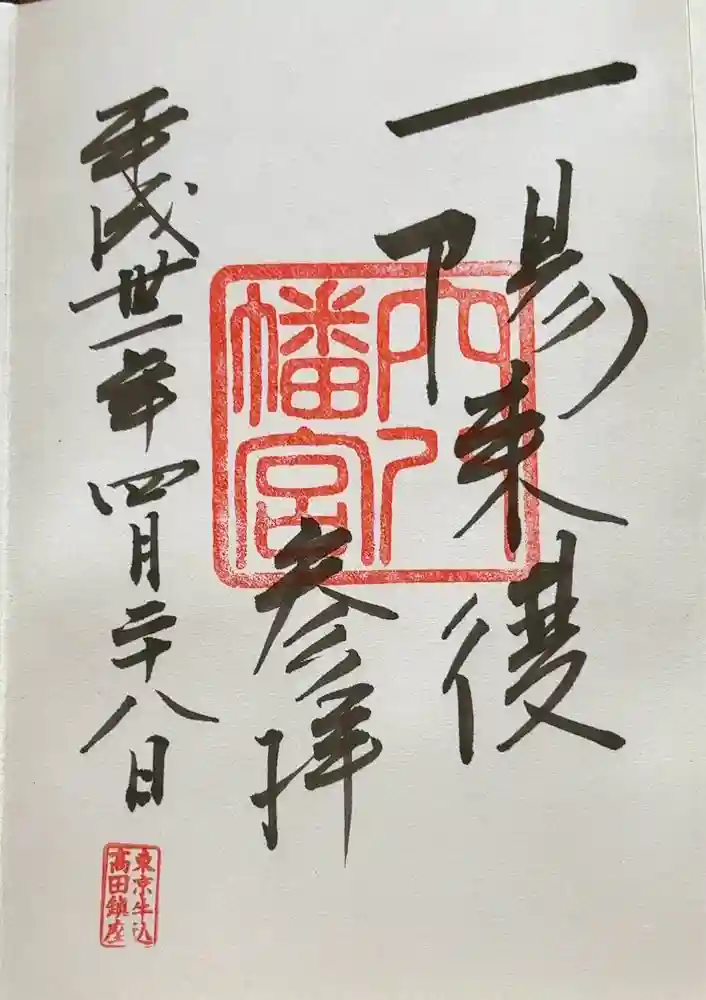 一陽来復
穴八
幡宮
参拝
平成丗一年四月二十八日
東京牛込
高田鎮座